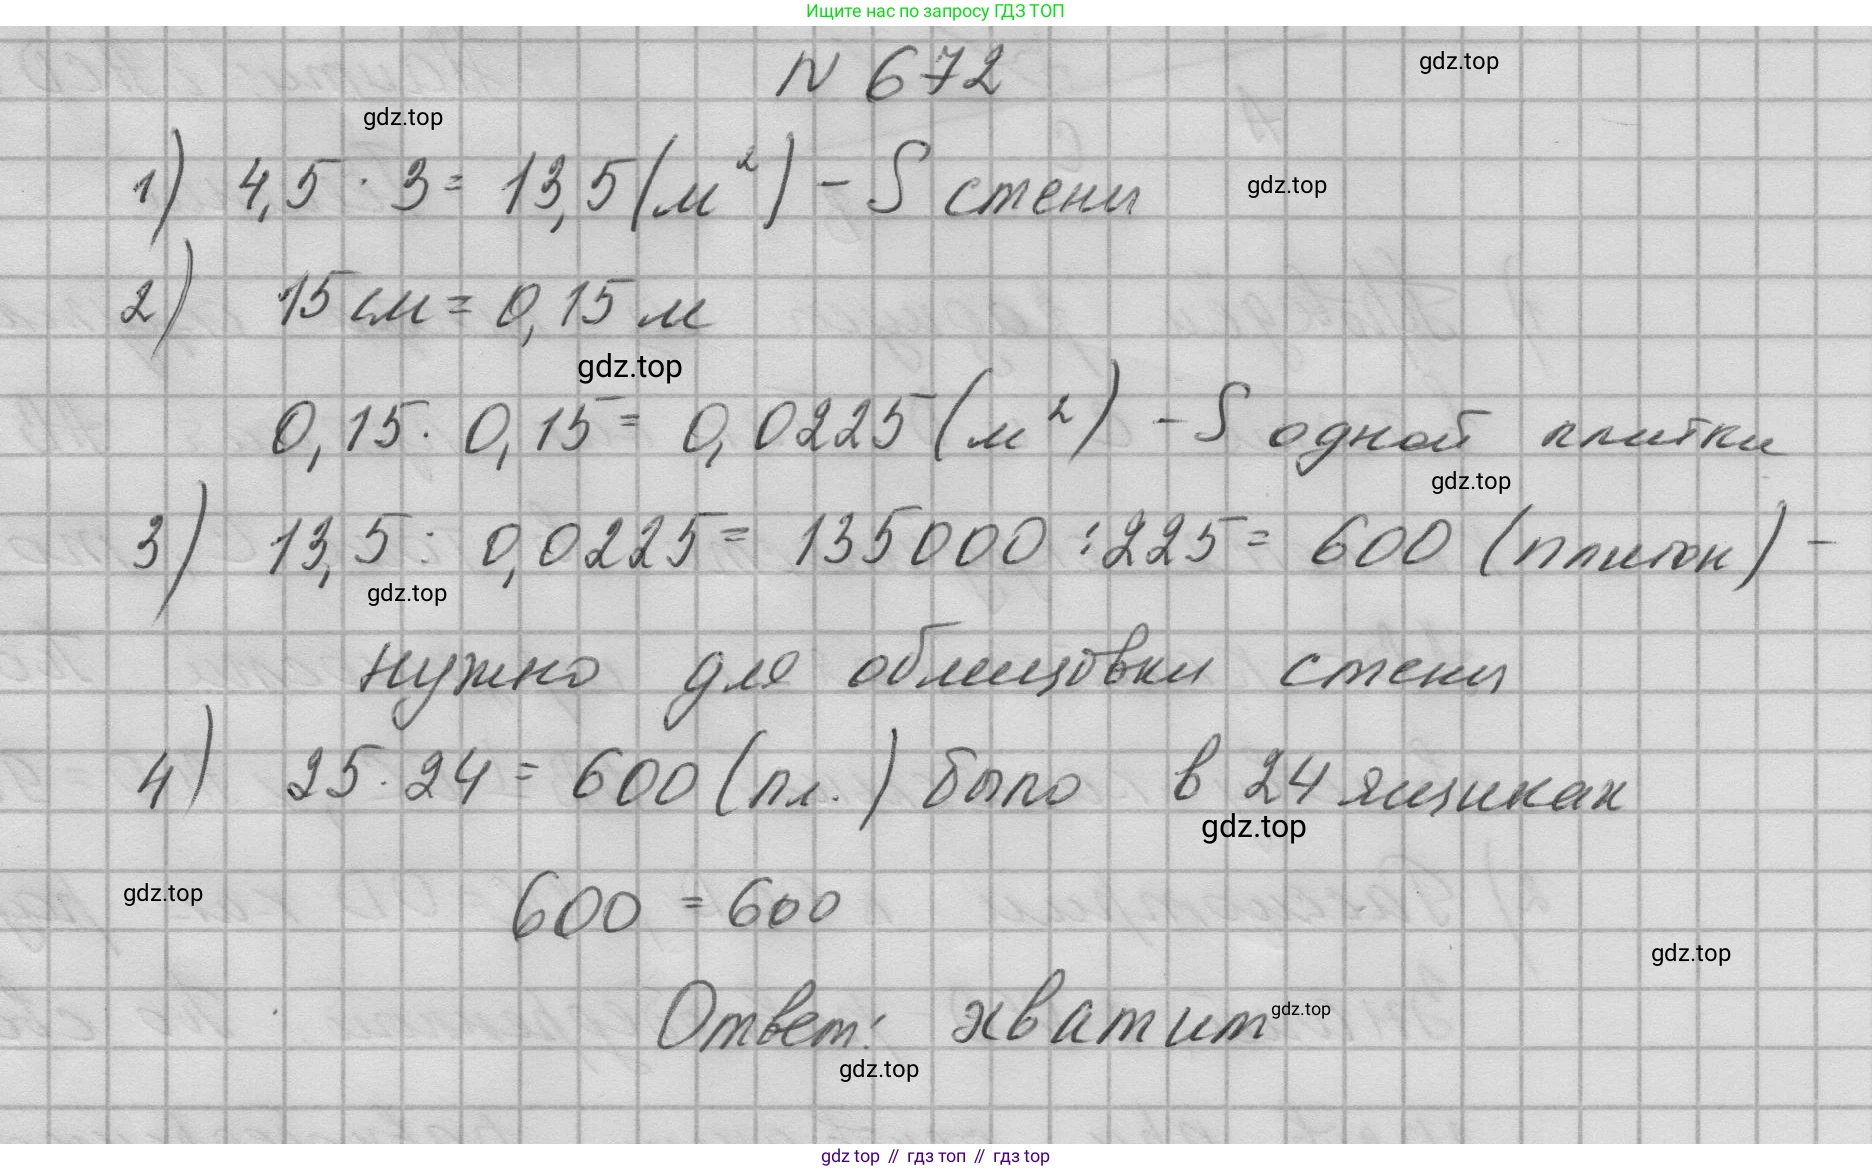 Ищите нас по запросу ГДЗ ТОП
N 672
gdz.top
gdz.top
1) 4,5 · 3 = 13,5 (м²) - S стены
gdz.top
2) 15 см = 0,15 м
gdz.top
0,15 · 0,15 = 0,0225 (м²) - S одной плитки
gdz.top
3) 13,5 : 0,0225 = 135000 : 225 = 600 (плиток) -
gdz.top
нужно для облицовки стены
4) 25 · 24 = 600 (пл.) было в 24 ящиках
gdz.top
gdz.top
600 = 600
gdz.top
Ответ: хватит
gdz.top
gdz.top
gdz top // гдз топ // гдз top